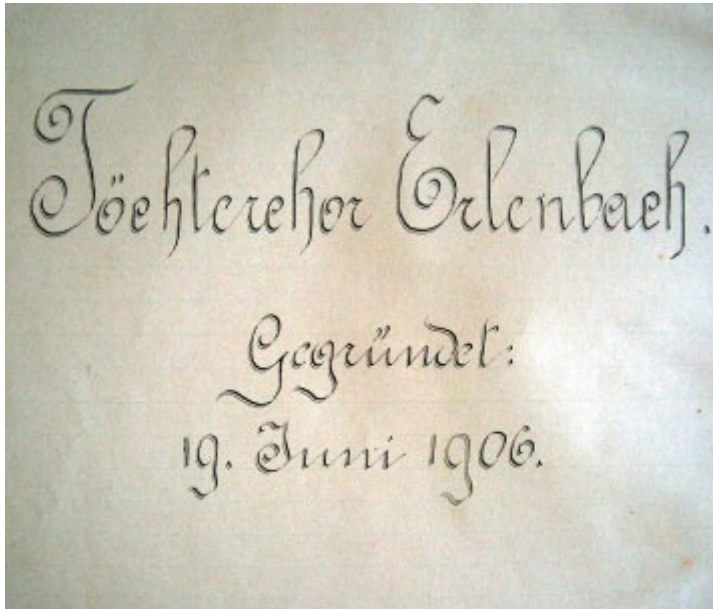 Töchterchor Erlenbach.
Gegründet:
19. Juni 1906.